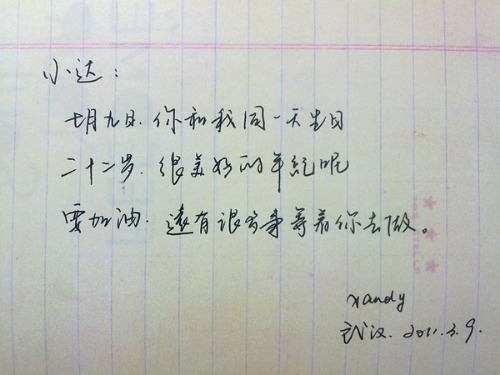 小达：
七月九日.你和我同一天生日
二十二岁.很美好的年纪呢
要加油.还有很多事等着你去做。
xandy
武汉.2011.3.9.